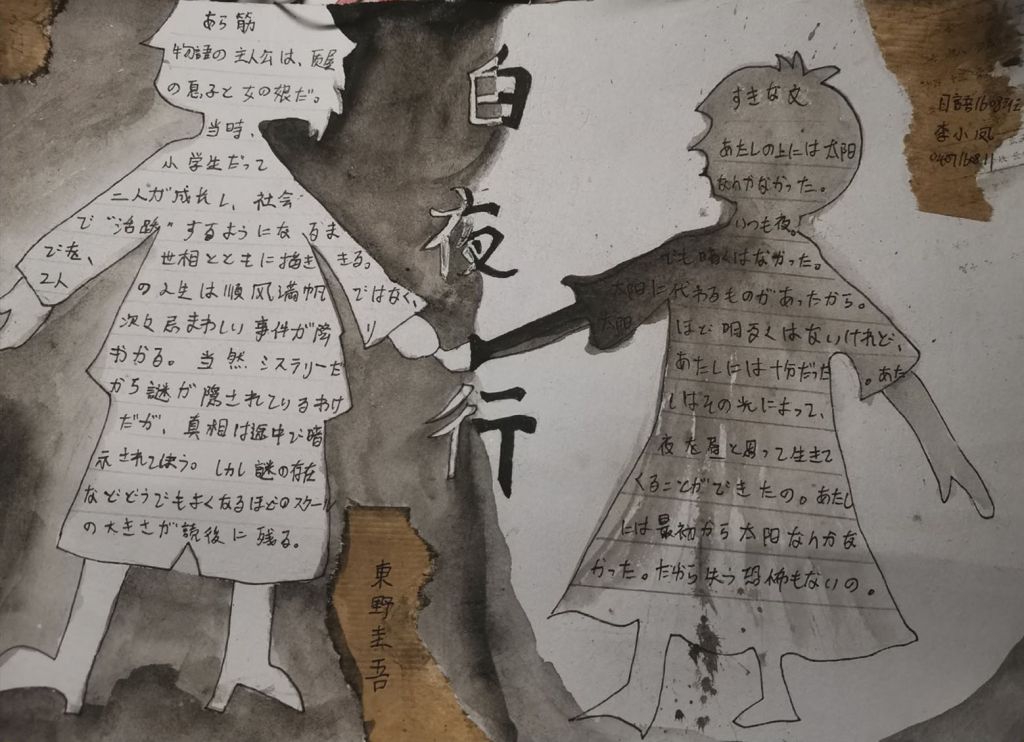 あら筋
物語の主人公は、质屋
の息子と女の娘だ。
当時、
小学生だって
二人が成长し、社会
で"活跃"するようになるま
でを、世相とともに描ききる。
2人の人生は順风満帆ではなく、
次々忌まわしい事件が降り
おかる。当然、シスラリーだ
から謎が隠されているわけ
だが、真相は途中で暗
示されてしまう。しかし謎の存在
などどうでもよくなるほどのスケール
の大きさが読後に残る。
白
夜
行
東野圭吾
すきな文
あたしの上には太阳
なんかなかった。
いつも夜。
でも暗くはなかった。
太阳に代わるものがあったから。
太阳ほど明るくはないけれど、
あたしには十分だった。あた
しはその光によって、
夜を昼と思って生きて
くることができたの。あたし
には最初から太阳なんかな
かった。だから失う恐怖もないの。
李小凤